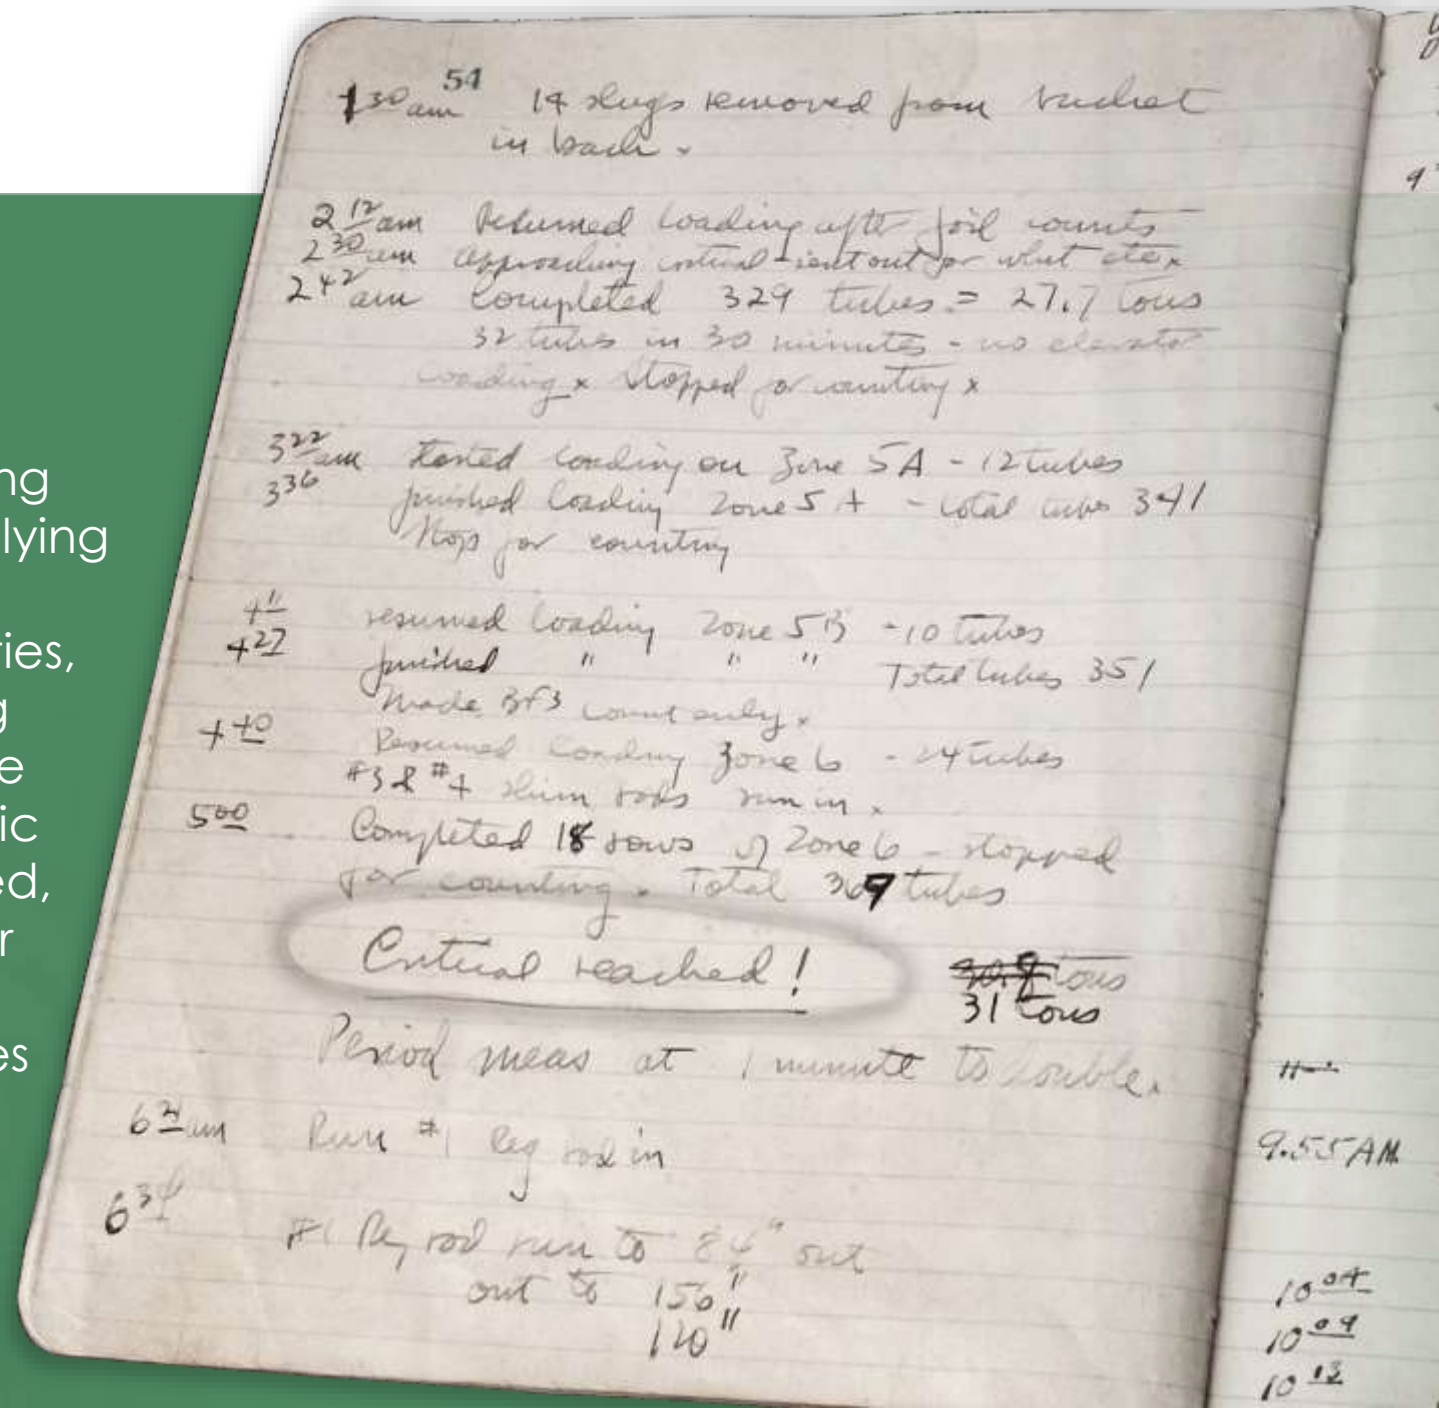 ng
lying
ries,
g
e
ic
ed,
r
es
51
1 30 am 14 slugs removed from bucket
in back.
2 12 am Resumed loading after foil counts
2 30 am approaching critical - sent out for
2 42 am Completed 329 tubes = 27.7 tons
32 tubes in 30 minutes - no elevator
loading x Stopped for counting x
3 22 am Started loading on Zone 5A - 12 tubes
3 36 finished loading Zone 5A - total tubes 341
Stop for counting
4 11 resumed loading Zone 5B - 10 tubes
4 27 finished " " " Total tubes 351
Made BF3 count only x
4 40 Resumed loading Zone 6 - 24 tubes
#3 & #4 shim rods run in x
5 00 Completed 18 rows of Zone 6 - stopped
for counting. Total 369 tubes
Critical reached! tons
31 tons
Period meas at 1 minute to double.
6 am Run #1 Reg rod in
6 34 #1 Reg rod run to 84" out
out to 150"
120"
9
9.55 AM
10 04
10 09
10 13